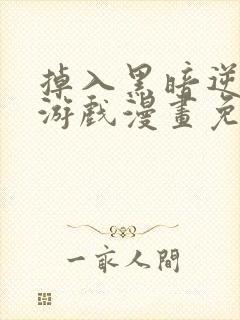 掉入黑暗逆
游戲漫畫免
一家人間